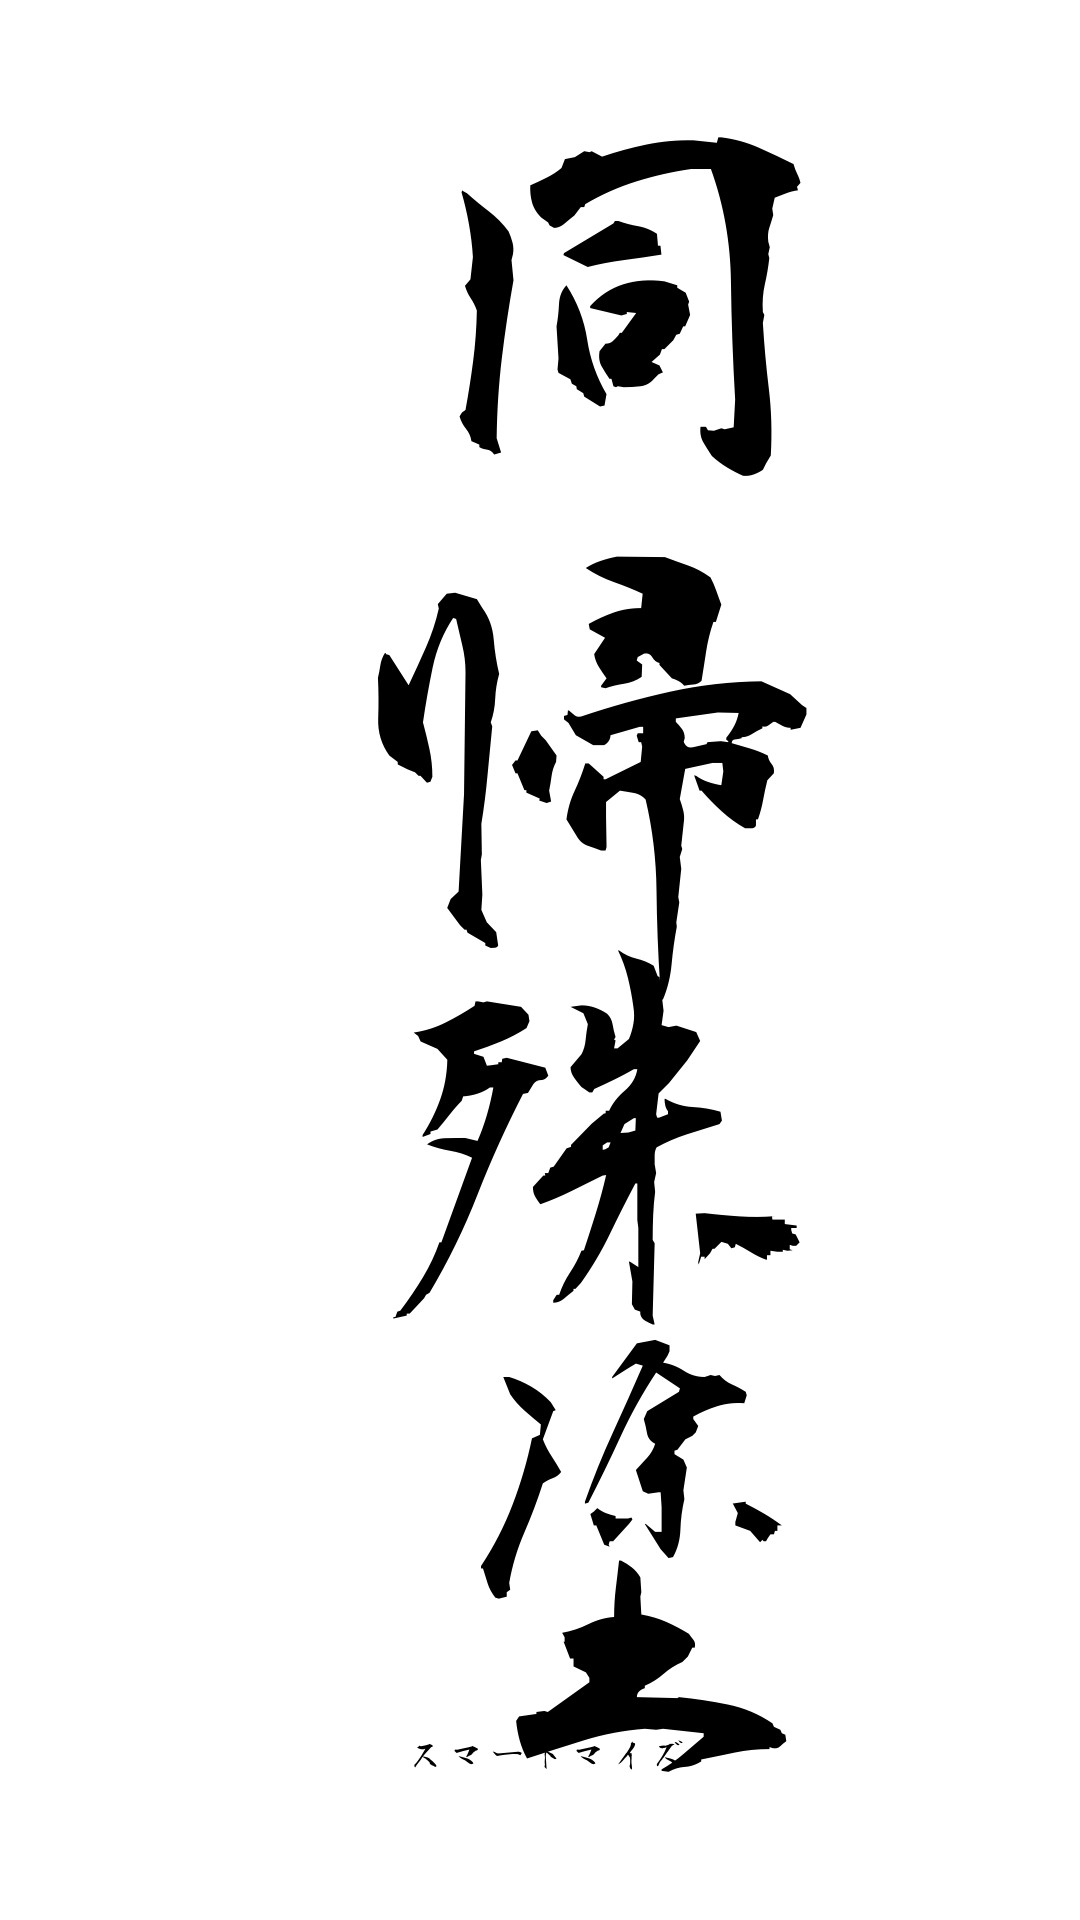 同帰殊塗
スマートマイズ